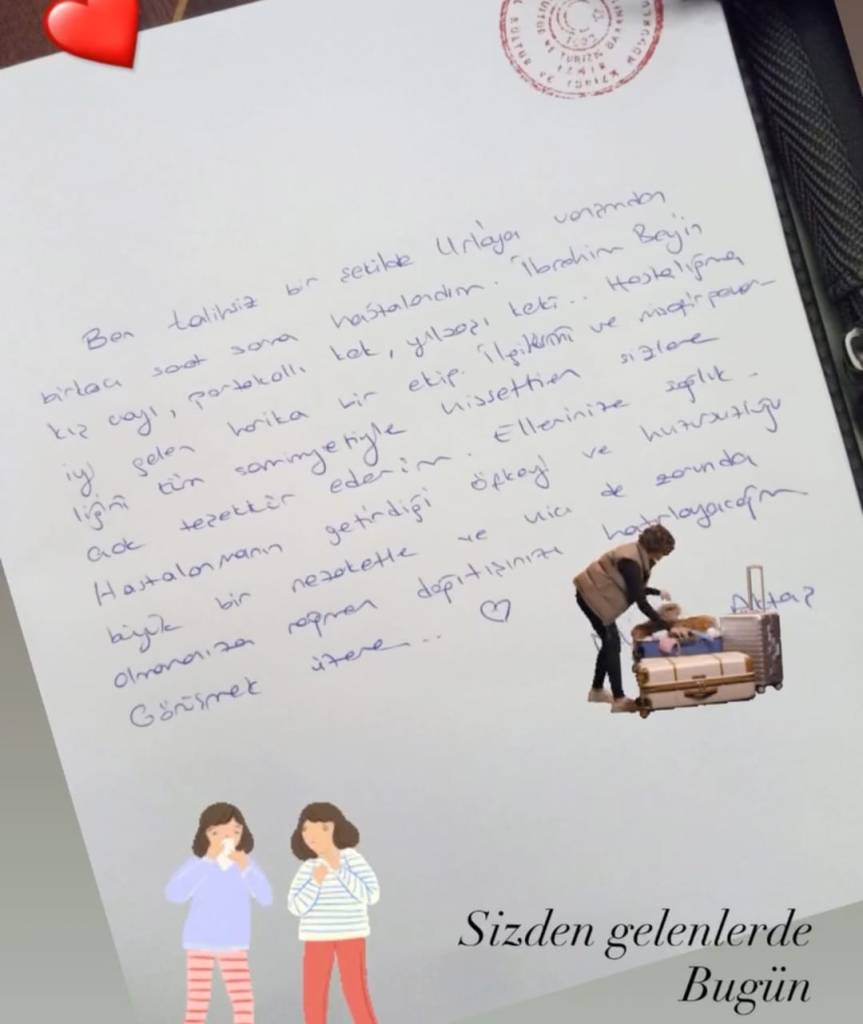 Ben talihsiz bir şekilde Urla'ya varışımdan
birkaç saat sonra hastalandım. İbrahim Bey'in
kış çayı, portakallı kek, yılbaşı keki.. Hastalığıma
iyi gelen harika bir ekip. İlgilerini ve misafirperver-
liğini tüm samimiyetiyle hissettiren sizlere
çok teşekkür ederim. Ellerinize sağlık.
Hastalanmanın getirdiği öfkeyi ve huzursuzluğu
büyük bir nezaketle ve de zorunda
olmamanıza rağmen dağıtışınızı hatırlayacağım
Görüşmek üzere... ♡
Aktaş
Sizden gelenlerde
Bugün